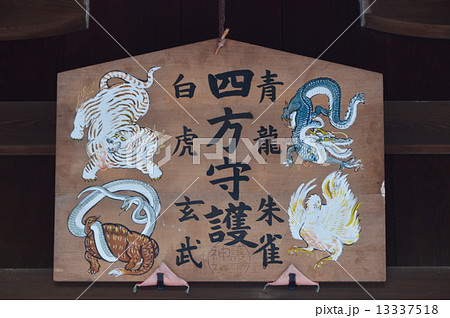 四方守護
青龍
朱雀
白虎
玄武
pixta.jp - 13337518